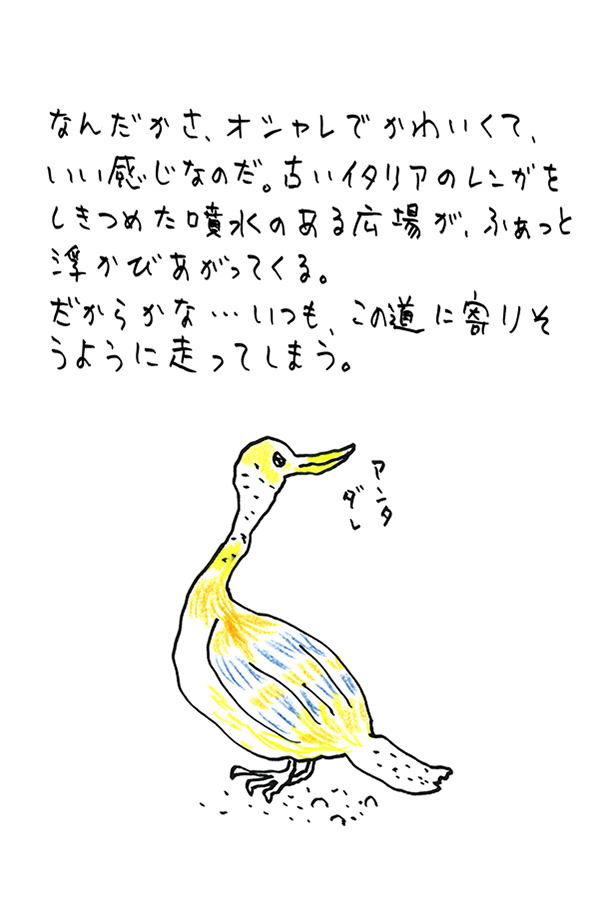 なんだかさ、オシャレでかわいくて、
いい感じなのだ。古いイタリアのレンガを
しきつめた噴水のある広場が、ふぁっと
浮かびあがってくる。
だからかな…いつも、この道に寄りそ
うように走ってしまう。
アンタ
ダレ